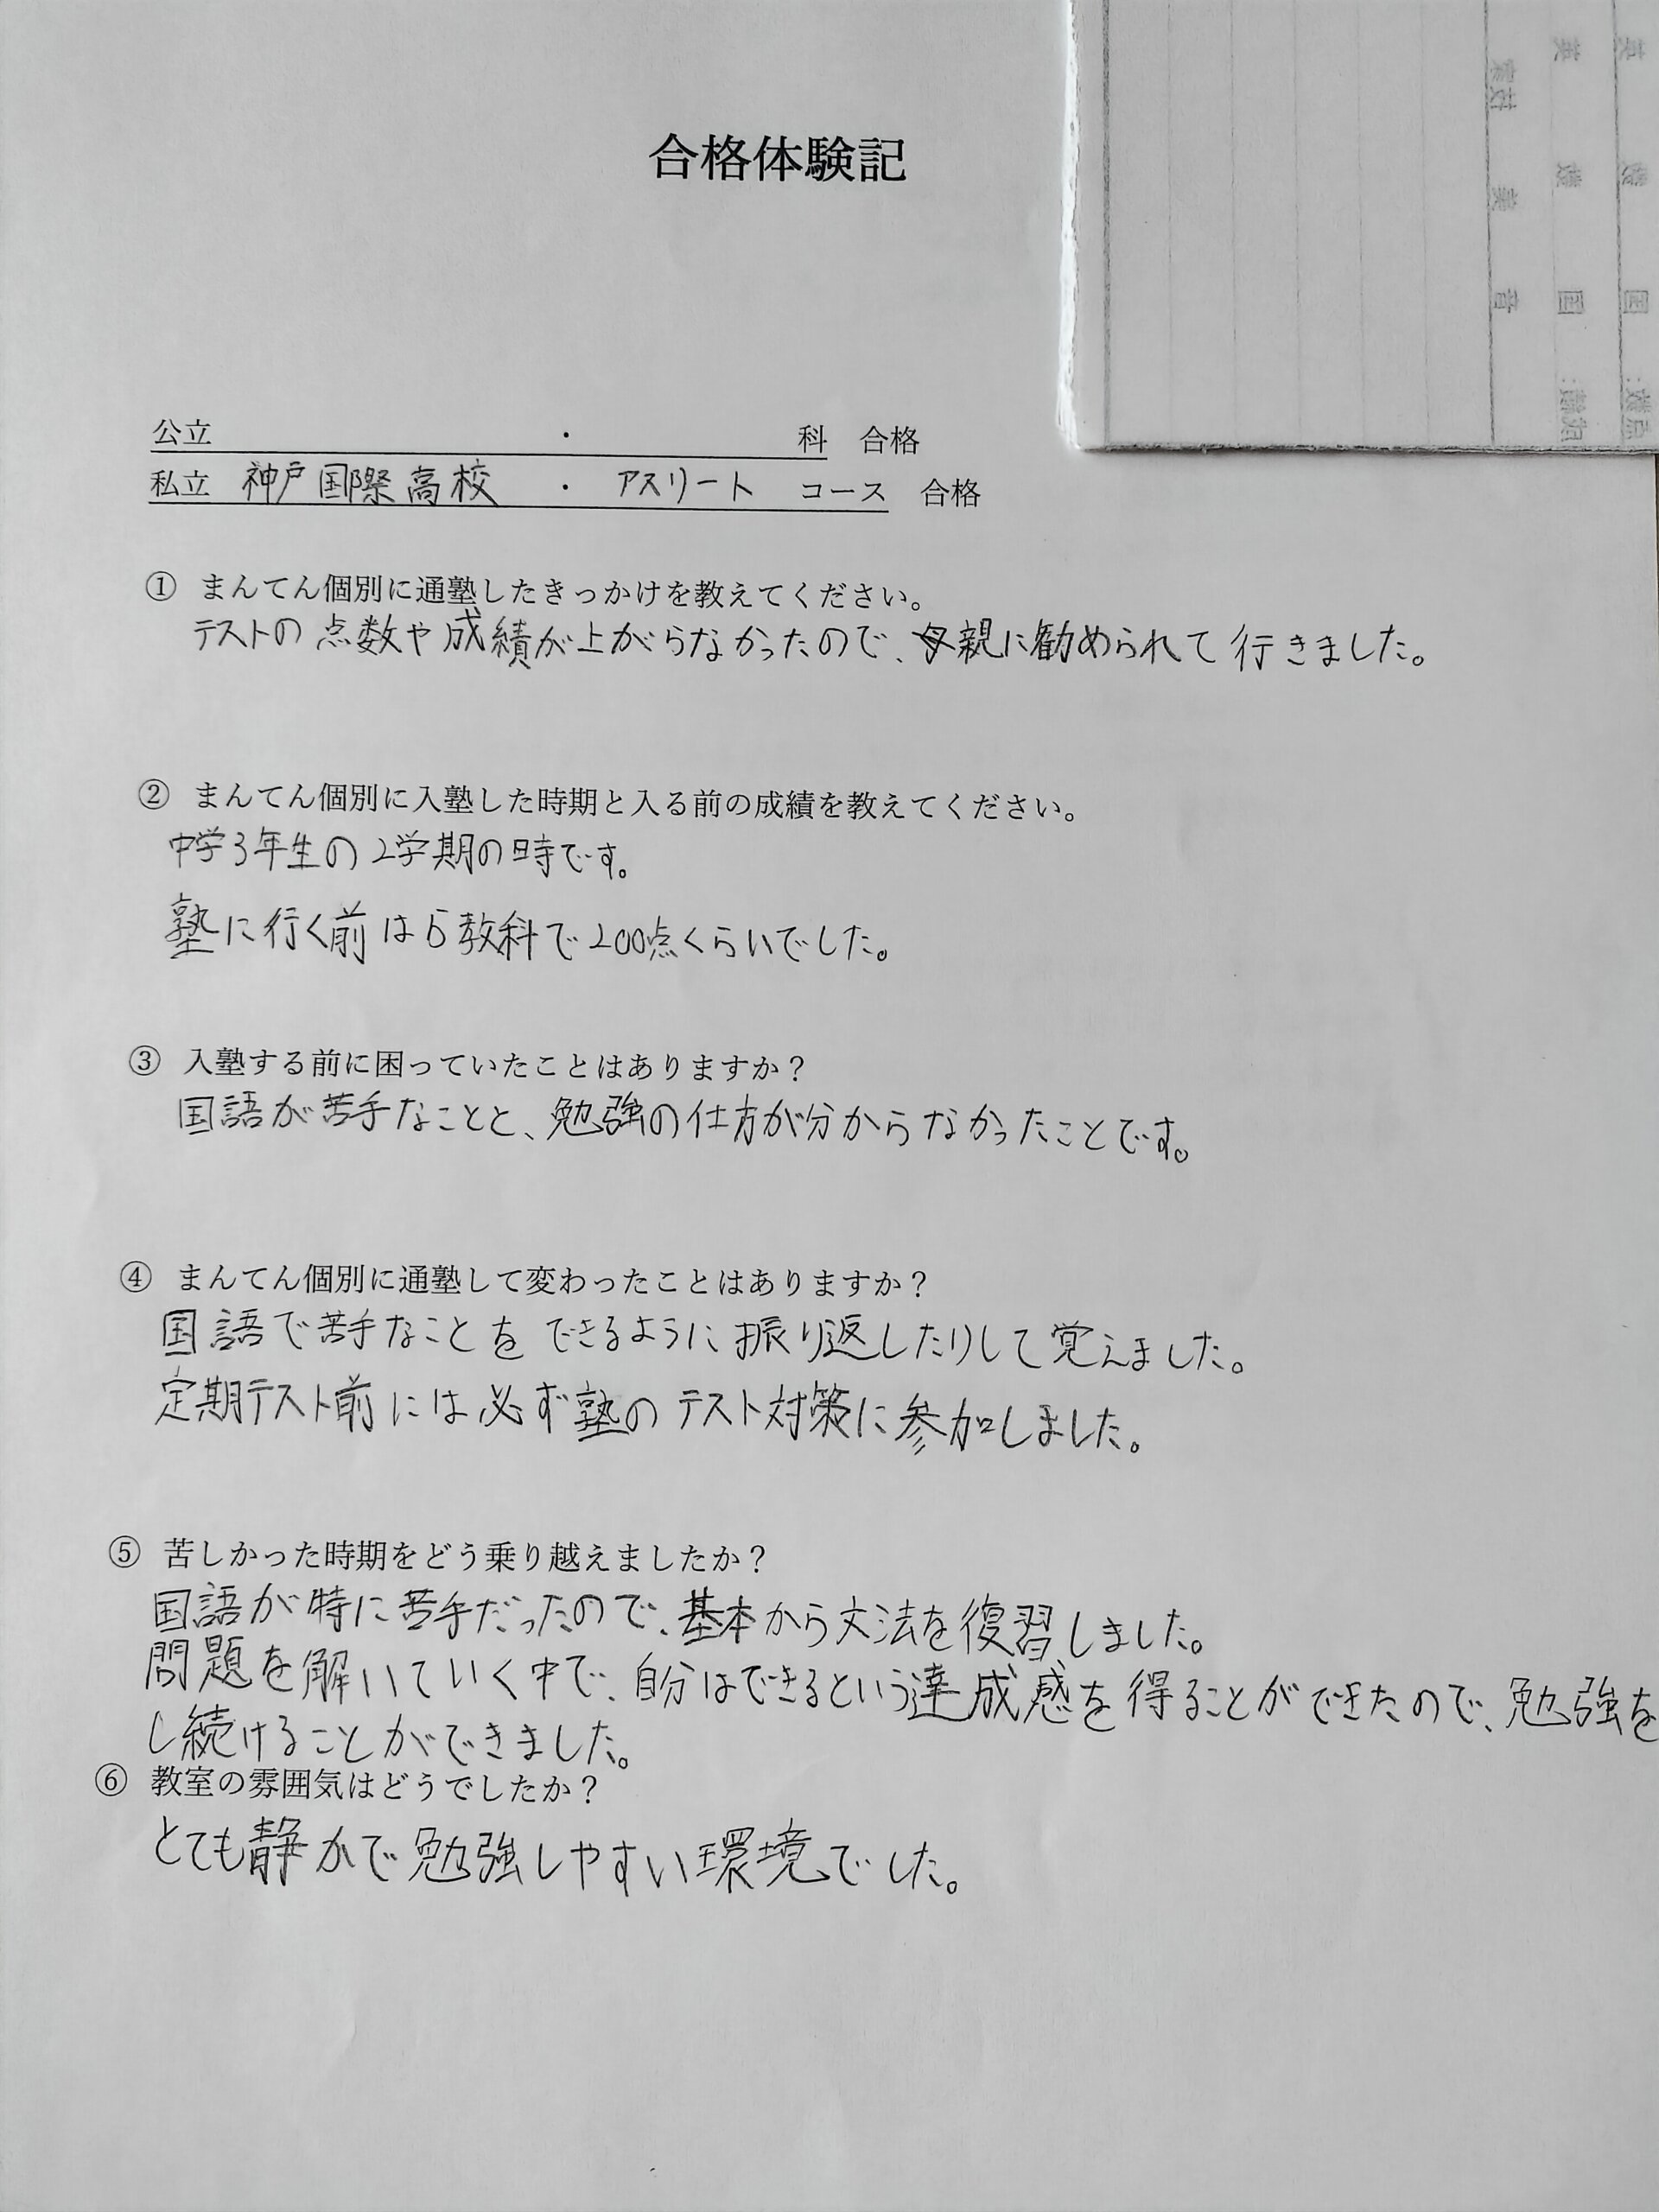 合格体験記
公立　・　科　合格
私立　神戸国際高校　・　アスリート　コース　合格
① まんてん個別に通塾したきっかけを教えてください。
テストの点数や成績が上がらなかったので、母親に勧められて行きました。
② まんてん個別に入塾した時期と入る前の成績を教えてください。
中学3年生の2学期の時です。
塾に行く前は5教科で200点くらいでした。
③ 入塾する前に困っていたことはありますか？
国語が苦手なことと、勉強の仕方が分からなかったことです。
④ まんてん個別に通塾して変わったことはありますか？
国語で苦手なことをできるように振り返したりして覚えました。
定期テスト前には必ず塾のテスト対策に参加しました。
⑤ 苦しかった時期をどう乗り越えましたか？
国語が特に苦手だったので、基本から文法を復習しました。
問題を解いていく中で、自分はできるという達成感を得ることができたので、勉強を
し続けることができました。
⑥ 教室の雰囲気はどうでしたか？
とても静かで勉強しやすい環境でした。